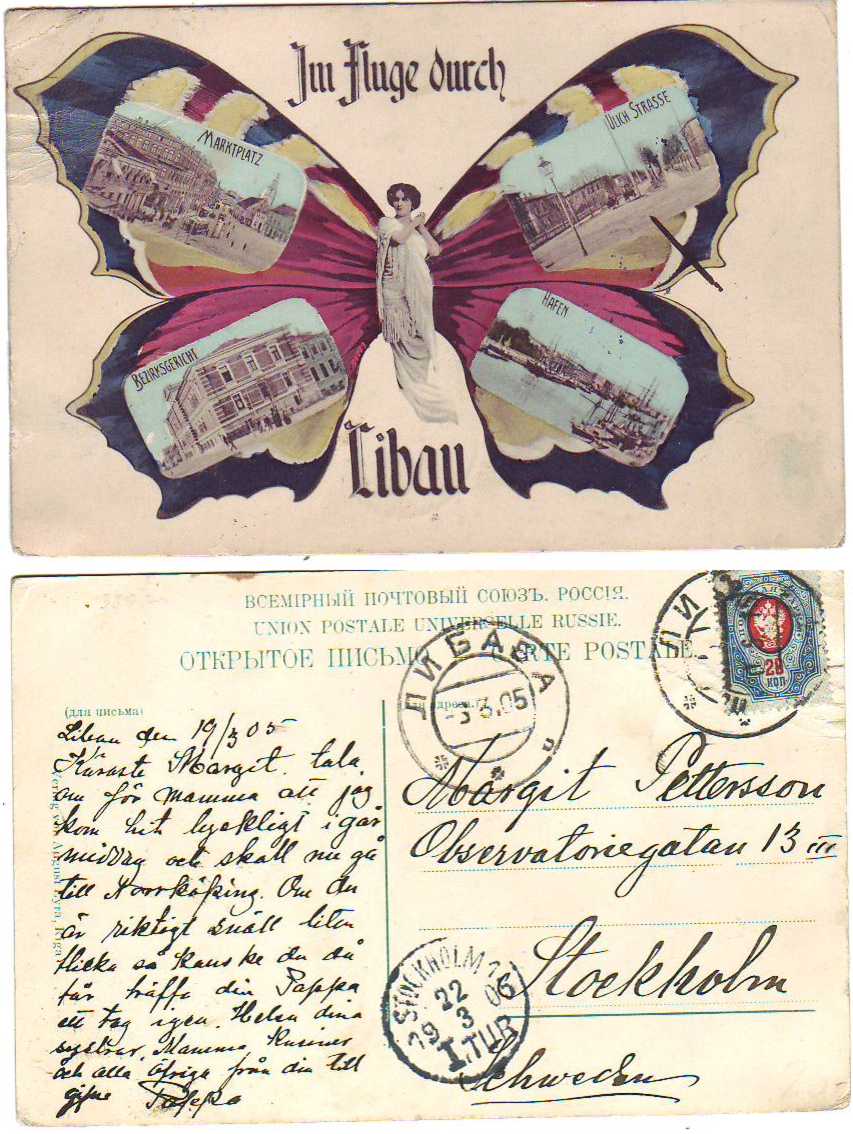 Im Fluge durch
MARKTPLATZ
ULICH STRASSE
BEZIRKSGERICHT
HAFEN
Libau
ВСЕМІРНЫЙ ПОЧТОВЫЙ СОЮЗЪ. РОССІЯ.
UNION POSTALE UNIVERSELLE RUSSIE.
ОТКРЫТОЕ ПИСЬМО — CARTE POSTALE.
28
КОП
ЛИБАВА
-3.3.05
(для письма)
Libau den 19/3 05
Käraste Margit. tala
om för mamma att jag
kom hit lyckligt i går
middag och skall nu gå
till Norrköping. Om du
är riktigt snäll liten
flicka så kanske du då
får träffa din Pappa
ett tag igen. Helsa dina
systrar, Mamma Kusiner
och alla öfriga från din till
gifne Pappa
Verlag von August Lyra, Riga
Margit Pettersson
Observatoriegatan 13 III
Stockholm
Schweden
STOCKHOLM 1
22
3
I.TUR